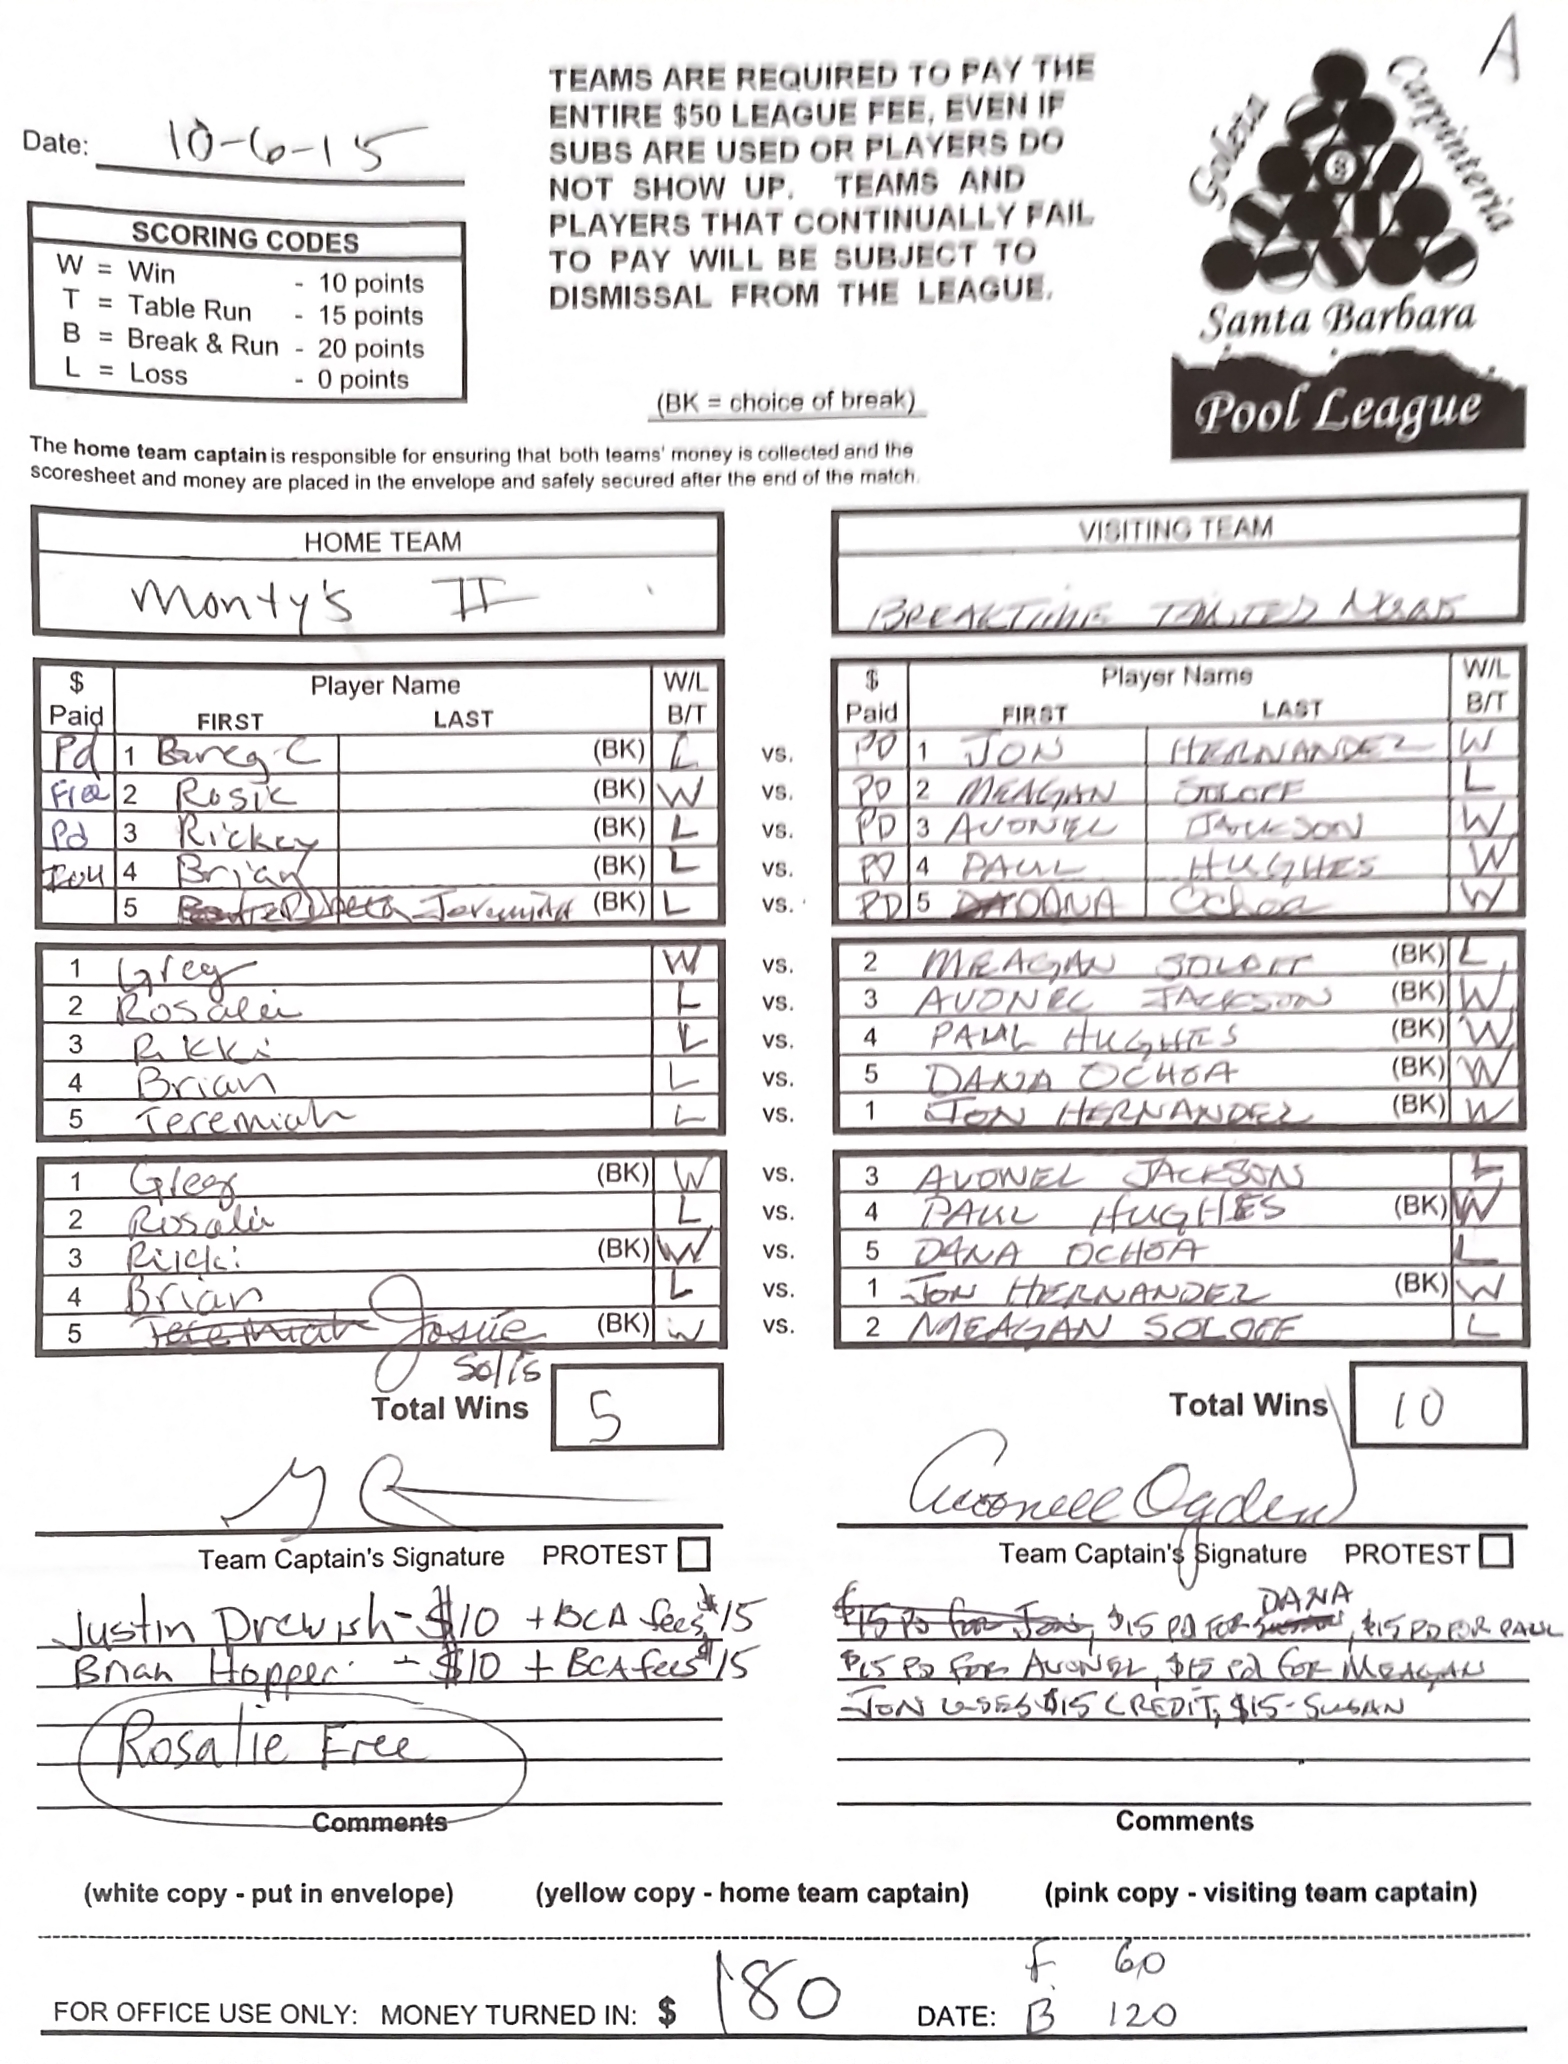 A
Date: 10-6-15
TEAMS ARE REQUIRED TO PAY THE
ENTIRE $50 LEAGUE FEE, EVEN IF
SUBS ARE USED OR PLAYERS DO
NOT SHOW UP. TEAMS AND
PLAYERS THAT CONTINUALLY FAIL
TO PAY WILL BE SUBJECT TO
DISMISSAL FROM THE LEAGUE.
Goleta
Carpinteria
8
Santa Barbara
Pool League
SCORING CODES
W = Win - 10 points
T = Table Run - 15 points
B = Break & Run - 20 points
L = Loss - 0 points
(BK = choice of break)
The home team captain is responsible for ensuring that both teams' money is collected and the
scoresheet and money are placed in the envelope and safely secured after the end of the match.
HOME TEAM
Monty's II
VISITING TEAM
BREAKTIME TAINTED
$ Paid Player Name FIRST LAST W/L B/T
$ Paid Player Name FIRST LAST W/L B/T
Pd 1 (BK) L vs. PD 1 JON HERNANDEZ W
Free 2 Rosie (BK) W vs. PD 2 MEAGAN SOLOFF L
Pd 3 Rickey (BK) L vs. PD 3 AVONEL JACKSON W
4 Brian (BK) L vs. PD 4 PAUL HUGHES W
5 Jeremiah (BK) L vs. PD 5 DANA Ochoa W
1 Greg W vs. 2 MEAGAN SOLOFF (BK) L
2 Rosalie L vs. 3 AVONEL JACKSON (BK) W
3 Rikki L vs. 4 PAUL HUGHES (BK) W
4 Brian L vs. 5 DANA OCHOA (BK) W
5 Jeremiah L vs. 1 JON HERNANDEZ (BK) W
1 Greg (BK) W vs. 3 AVONEL JACKSON L
2 Rosalie L vs. 4 PAUL HUGHES (BK) W
3 Rikki (BK) W vs. 5 DANA OCHOA L
4 Brian L vs. 1 JON HERNANDEZ (BK) W
5 Jeremiah Josue (BK) W vs. 2 MEAGAN SOLOFF L
Solis
Total Wins 5
Total Wins 10
Avonell Ogden
Team Captain's Signature PROTEST
Team Captain's Signature PROTEST
Justin Drewish - $10 + BCA fees $15
Brian Hopper - $10 + BCA fees $15
Rosalie Free
Comments
DANA
$15 PD for Jon, $15 PD FOR , $15 PD FOR PAUL
$15 PD FOR AVONEL, $15 Pd FOR MEAGAN
JON USES $15 CREDIT, $15 - SUSAN
Comments
(white copy - put in envelope) (yellow copy - home team captain) (pink copy - visiting team captain)
FOR OFFICE USE ONLY: MONEY TURNED IN: $ 180 DATE:
F 60
B 120